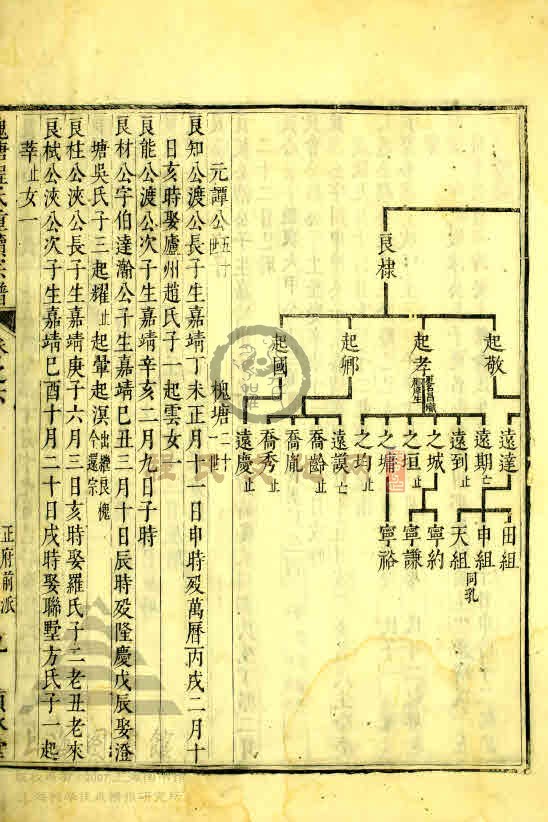 良棣
起敬
起孝
起卿
起國
遠達
遠期亡
遠到止
之城
之垣止
之墉
之均止
遠謨亡
喬齡止
喬胤
喬秀止
遠慶止
田組
申組
天組
同乳
寧約
寧謙
寧裕
元譚公五十世 槐塘二十世
良知公渡公長子生嘉靖丁未正月十一日申時歿萬曆丙戌二月十
日亥時娶廬州趙氏子一起雲女一
良能公渡公次子生嘉靖辛亥二月九日子時
良材公字伯達瀚公子生嘉靖巳丑三月十日辰時歿隆慶戊辰娶澄
塘吳氏子三起耀止起暈起溟出繼良槐今還宗
良柱公浹公長子生嘉靖庚子六月三日亥時娶羅氏子二老丑老來
良栻公浹公次子生嘉靖巳酉十月二十日戌時娶聯墅方氏子一起
莘止女一
槐塘程氏重續宗譜 卷之六 正府前派 九